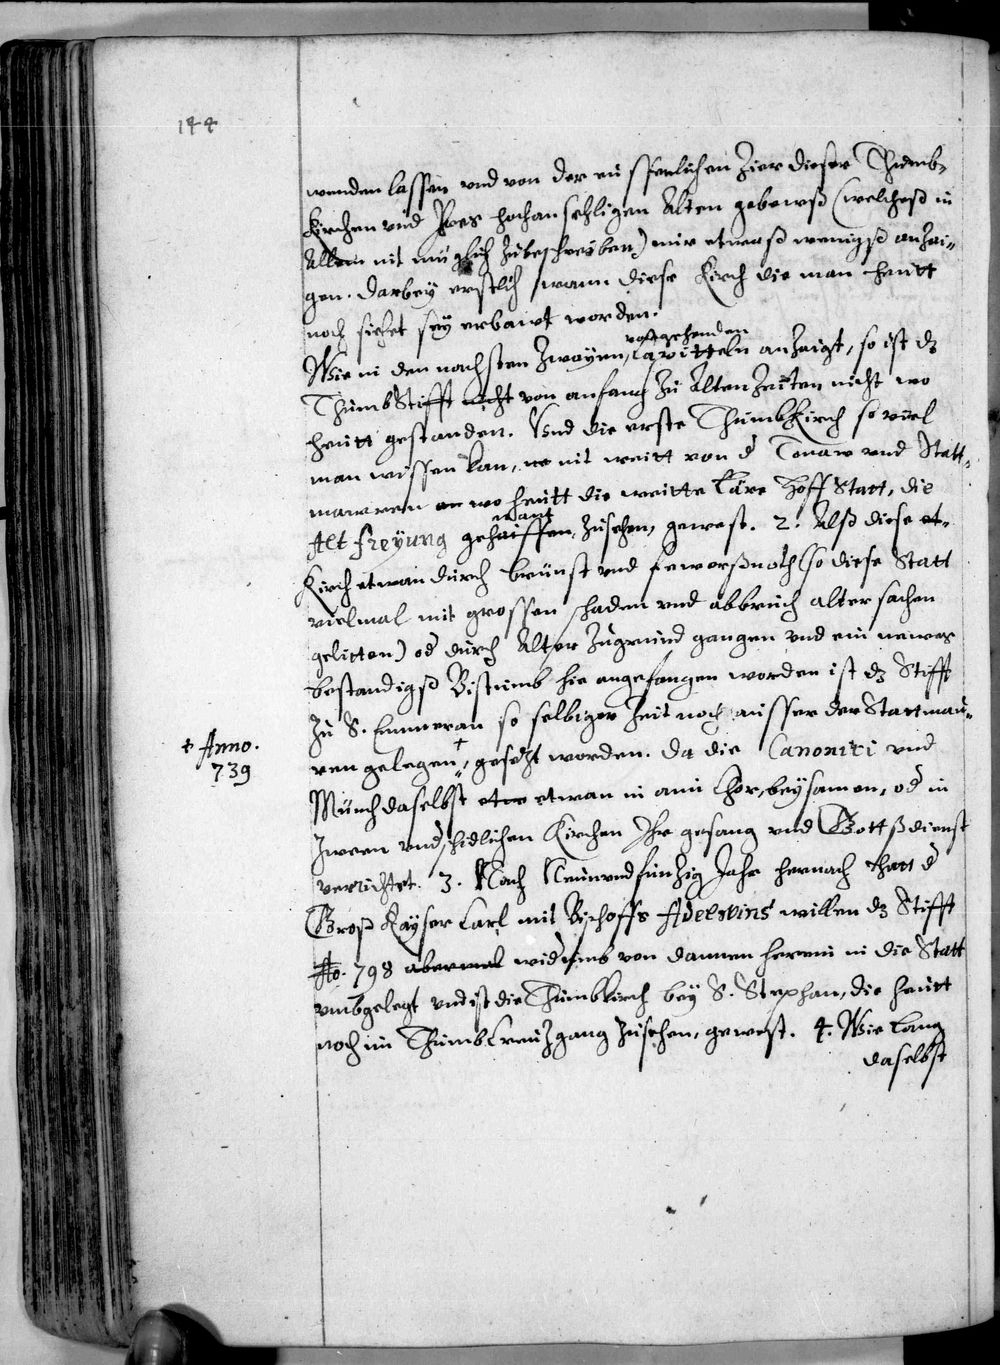 144
wenden lassen vnd von der eüsserlichen Zier dieser Thumb-
kirchen vnd Ihres hochansehligen Alten gebewß (welcheß in
Allem nit müglich Zübeschreyben) nur etwaß wenigß anzai-
gen. Darbey erstlich wann diese Kirch die man heütt
noch siehet sey erbawt worden.
vorgehenden
Wie in den nachsten Zwayen, Capitteln anzaigt, so ist dz
ThumbStifft nicht von anfang Zu Alten Zeitten nicht wo
heütt gestanden. Vnd die erste Thumbkirch so viel
man wissen kan, nit weitt von d Tonaw vnd Statt-
mawren wo heütt die weitte läre Hoff Statt, die
nant
Alt freyung gehaissen, Zusehen, gewest. 2. Alß diese et-
Kirch etwan durch brünst vnd feworßnoth (so diese Statt
vielmal mit grossen schaden vnd abbruch alter sachen
gelitten) od durch Alter Zugrund gangen vnd ein newes
bestandigß Bistumb hie angefangen worden ist dz Stifft
Zu S. Emmeran so selbiger Zeit noch ausser der Stattmau-
ren gelegen +, gesetzt worden. Da die Canonici vnd
+ Anno.
739
Münch daselbst etwan in aim Chor, beysamen, od in
Zween vnderschidlichen Kirchen Ihr gesang vnd Gottßdienst
verrichtet. 3. Nach Neünundfünfzig Jahr hernach hatt d
Groß Kayser Carl mit Bischoffs Adelwins willen dz Stifft
Ao. 798 abermal widerumb von dannen herein in die Statt
vmbgelegt vnd ist die Thumbkirch bey S. Stephan, die heütt
noch im Thumb Creützgang Zusehen, gewest. 4. Wie lang
daselbst